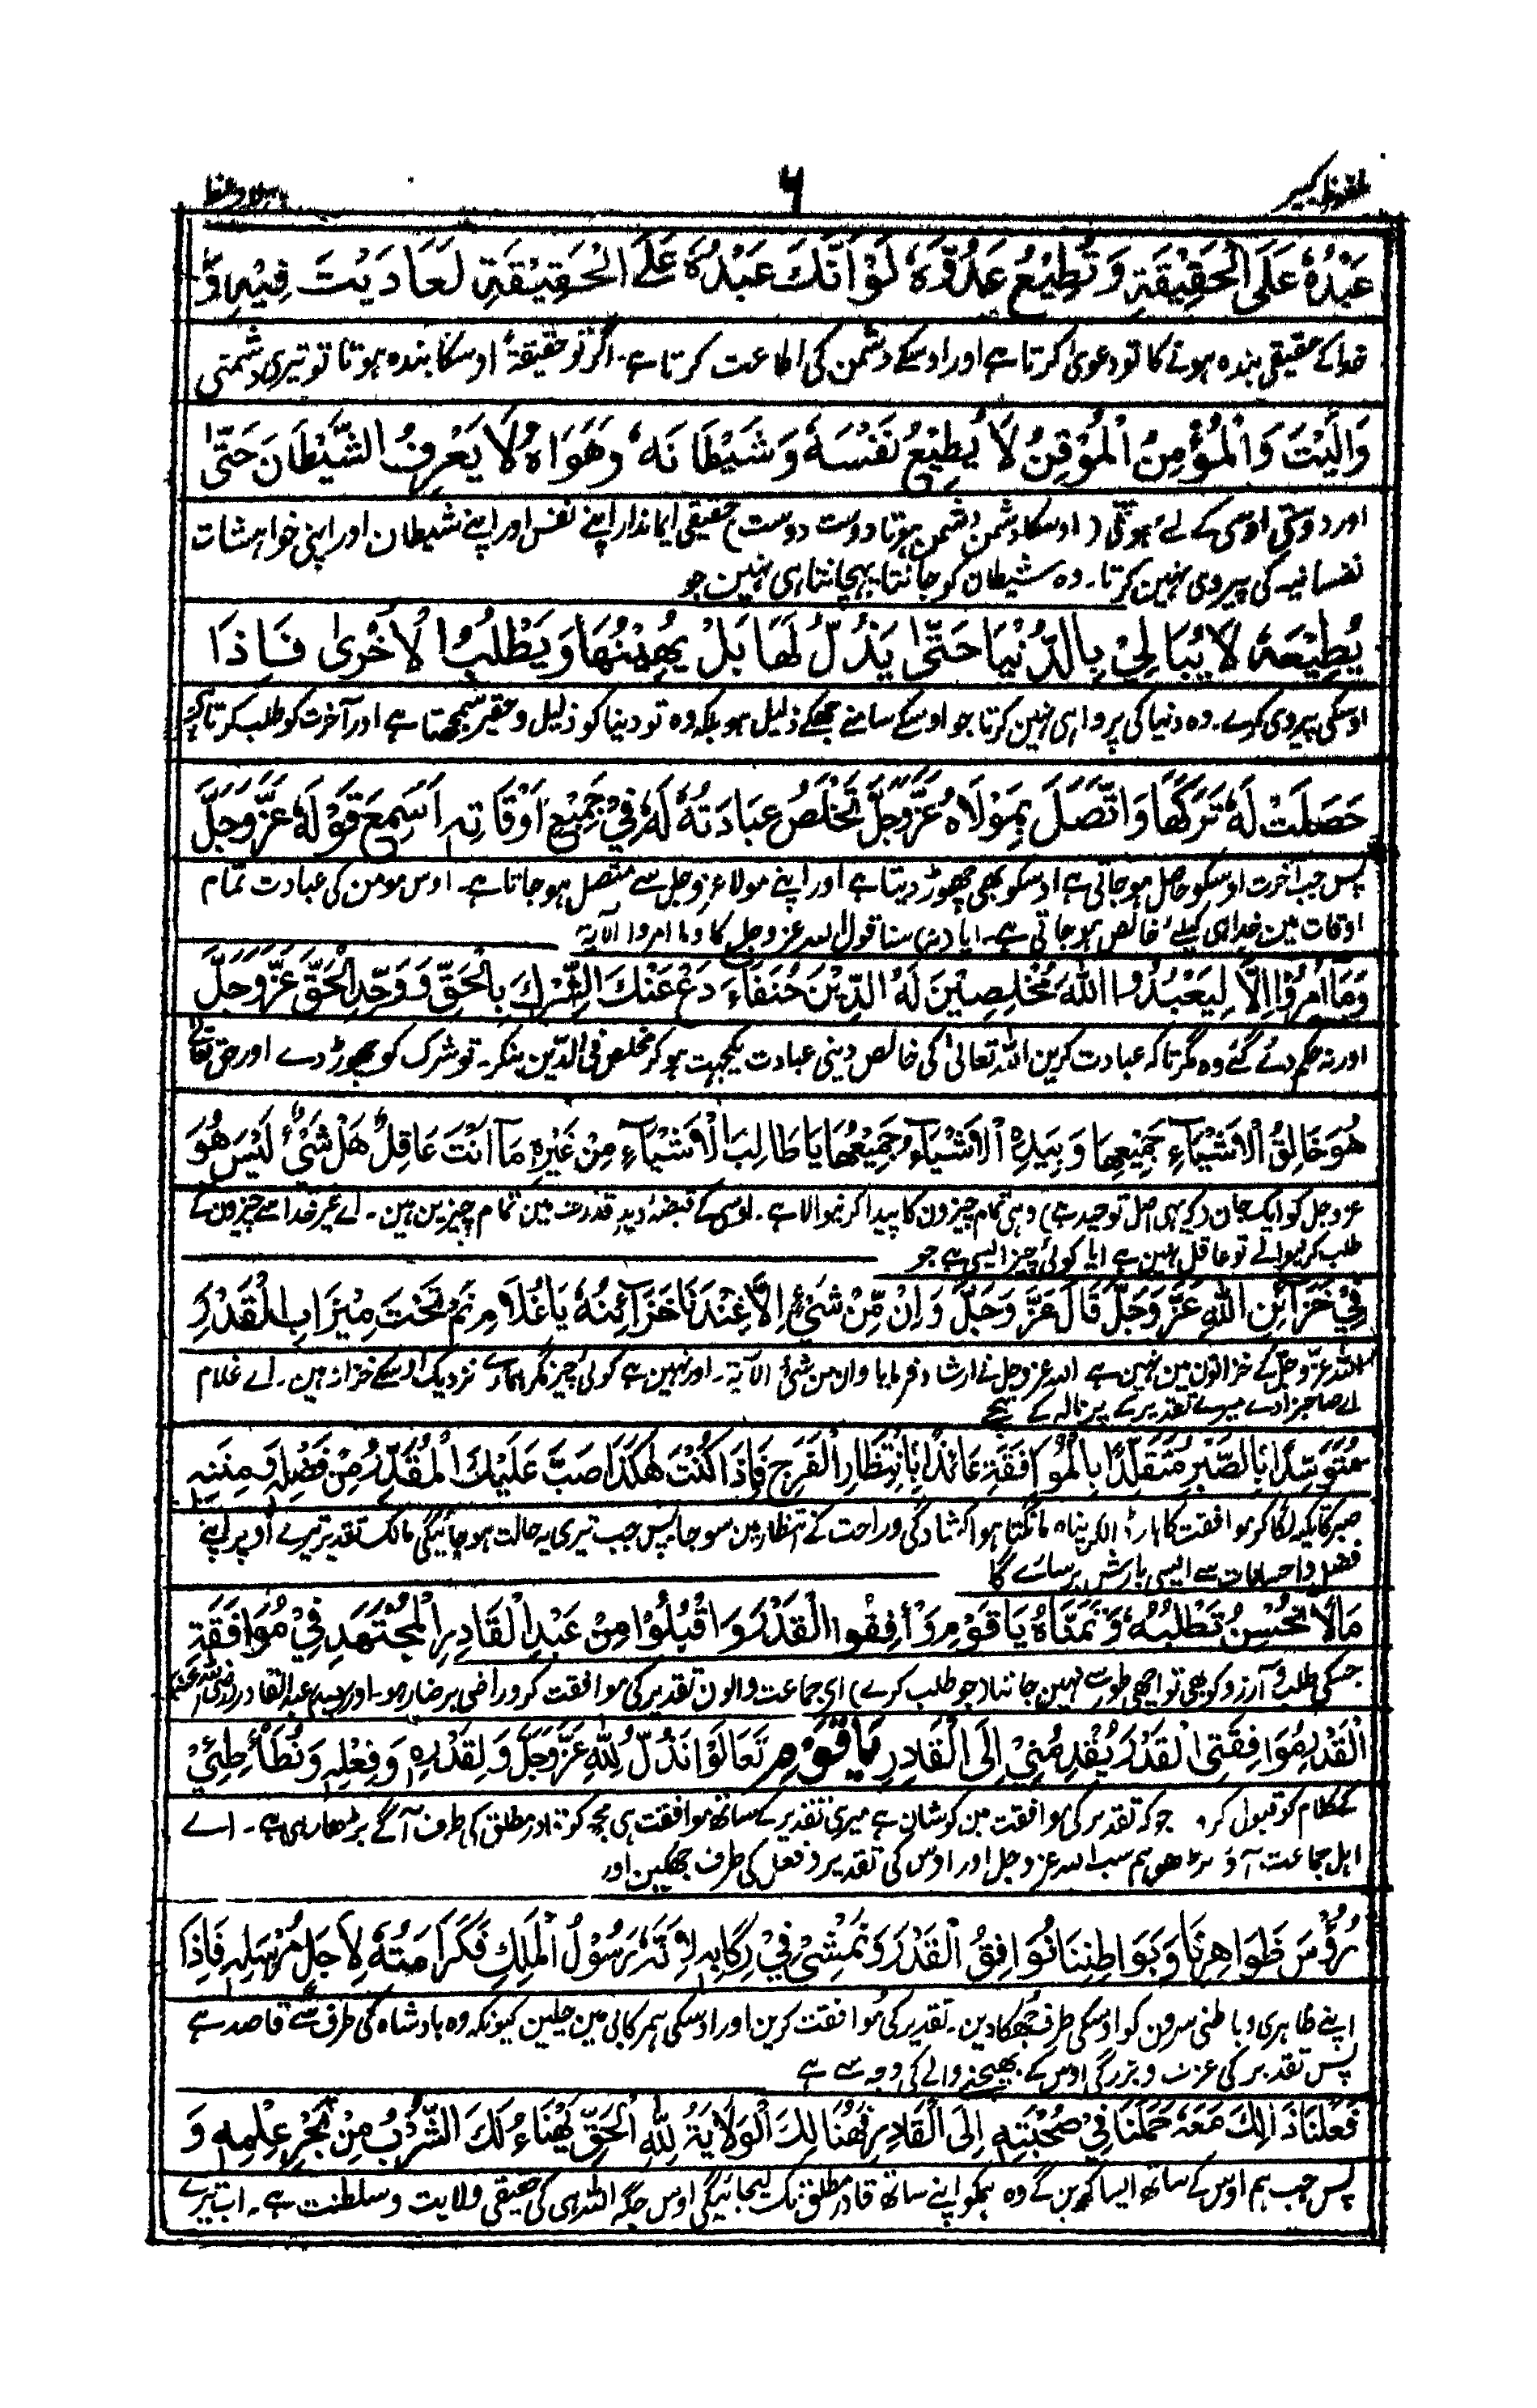 ملفوظ کبیر
۶
عَبْدُهٗ عَلَی الْحَقِیْقَةِ وَ تُطِیْعُ عَدُوَّهٗ لَوْ اَنَّكَ عَبْدُهٗ عَلَی الْحَقِیْقَةِ لَعَادَیْتَ فِیْهِ وَ
خدا کے حقیقی بندہ ہونے کا تو دعویٰ کرتا ہے اور اوسکے دشمن کی اطاعت کرتا ہے۔ اگر تو حقیقۃً اوسکا بندہ ہوتا تو تیری دشمنی
وَالَیْتَ وَالْمُؤْمِنُ الْمُوْقِنُ لَا یُطِیْعُ نَفْسَهٗ وَ شَیْطَانَهٗ وَهَوَاهُ لَا یَعْرِفُ الشَّیْطَانَ حَتّٰی
اور دوستی اوسی کے لئے ہوتی (اوسکا دشمن دشمن ہوتا دوست دوست) حقیقی ایماندار اپنے نفس اور اپنے شیطان اور اپنی خواہشات
نفسانیہ کی پیروی نہین کرتا۔ وہ شیطان کو جانتا پہچانتا ہی نہین جو
یُطِیْعَهٗ لَا یُبَالِیْ بِالدُّنْیَا حَتّٰی یَذُلَّ لَهَا بَلْ یُهِیْنُهَا وَ یَطْلُبُ الْاُخْرٰی فَاِذَا
اوسکی پیروی کرے۔ وہ دنیا کی پروا ہی نہین کرتا جو اوسکے سامنے جھکے ذلیل ہو بلکہ وہ تو دنیا کو ذلیل و حقیر سمجھتا ہے اور آخرت کو طلب کرتا ہے
حَصَلَتْ لَهٗ تَرَكَهَا وَاتَّصَلَ بِمَوْلَاهُ عَزَّوَجَلَّ تَخْلُصُ عِبَادَتُهٗ لَهٗ فِیْ جَمِیْعِ اَوْقَاتِهٖ اَسَمِعَ قَوْلَهٗ عَزَّوَجَلَّ
پس جب آخرت اوسکو حاصل ہو جاتی ہے اوسکو بھی چھوڑ دیتا ہے اور اپنے مولا عزوجل سے متصل ہو جاتا ہے۔ اوس مومن کی عبادت تمام
اوقات مین خدا ہی کیلئے خالص ہو جاتی ہے۔ سنا قول اللہ عزوجل کا وما امروا الآیۃ
وَمَا اُمِرُوْا اِلَّا لِیَعْبُدُوا اللّٰهَ مُخْلِصِیْنَ لَهُ الدِّیْنَ حُنَفَآءَ دَعْ عَنْكَ الشِّرْكَ بِالْحَقِّ وَ وَحِّدِ الْحَقَّ عَزَّوَجَلَّ
اور نہ حکم دئے گئے وہ مگر تاکہ عبادت کرین اللہ تعالیٰ کی خالص دینی عبادت یکجہت ہو کر مخلص فی الدین بنکر۔ تو شرک کو چھوڑ دے اور حق تعالے
هُوَ خَالِقُ الْاَشْیَآءِ جَمِیْعِهَا وَ بِیَدِهِ الْاَشْیَآءُ جَمِیْعُهَا یَا طَالِبَ الْاَشْیَآءِ مِنْ غَیْرِهٖ مَآ اَنْتَ عَاقِلٌ هَلْ شَیْئٌ لَیْسَ هُوَ
عزوجل کو ایک جان (کہ یہی اصل توحید ہے) وہی تمام چیزون کا پیدا کرنیوالا ہے۔ اوسی کے قبضۂ ید قدرت مین تمام چیزین ہین۔ اے غیر خدا سے چیزون کے
طلب کرنیوالے تو عاقل نہین ہے آیا کوئی چیز ایسی ہے جو
فِیْ خَزَآئِنِ اللّٰهِ عَزَّوَجَلَّ قَالَ عَزَّوَجَلَّ وَاِنْ مِّنْ شَیْئٍ اِلَّا عِنْدَنَا خَزَآئِنُهٗ یَا غُلَامُ نَمْ تَحْتَ مِیْزَابِ الْقَدَرِ
اللہ عزّوجلّ کے خزانون مین نہین ہے اللہ عزوجل نے ارشاد فرمایا وان من شئ الآیۃ۔ اور نہین ہے کوئی چیز مگر ہمارے نزدیک اوسکے خزانہ ہین۔ اے غلام
اے صاحبزادے میرے تقدیر کے پرنالہ کے نیچے
مُتَوَسِّدًا بِالصَّبْرِ مُتَقَلِّدًا بِالْمُوَافَقَةِ عَائِذًا بِانْتِظَارِ الْفَرَجِ فَاِذَا كُنْتَ هٰكَذَا صَبَّ عَلَیْكَ الْمُقَدِّرُ مِنْ فَضْلِهٖ وَ مِنَنِهٖ
صبر کا تکیہ لگا کر موافقت کا ہار ڈالکر پناہ مانگتا ہوا کشادگی و راحت کے انتظار مین سو جا پس جب تیری یہ حالت ہو جائیگی مالک تقدیر تیرے اوپر اپنے
فضل و احسانات سے ایسی بارش برسائے گا
مَا لَا تُحْسِنُ تَطْلُبُهٗ وَ تَتَمَنَّاهُ یَا قَوْمِ وَافِقُوا الْقَدَرَ وَ اقْبَلُوْا مِنْ عَبْدِ الْقَادِرِ الْمُجْتَهِدِ فِیْ مُوَافَقَةِ
جسکی طلب و آرزو کو بھی تو اچھی طور سے نہین جانتا (جو طلب کرے) ای جماعت والون تقدیر کی موافقت کرو راضی برضا رہو۔ اور سید عبد القادر رضی اللہ عنہ
الْقَدَرِ مُوَافَقَتِی الْقَدَرَ یُقَدِّمُنِیْ اِلَی الْقَادِرِ یَا قَوْمِ تَعَالَوْا نَذُلُّ لِلّٰهِ عَزَّوَجَلَّ وَ لِقَدَرِهٖ وَ فِعْلِهٖ وَ نُطَأْطِئُ
کے کلام کو قبول کرو جو کہ تقدیر کی موافقت مین کوشان ہے میری تقدیر کے ساتھ موافقت ہی مجھکو قادر مطلق کی طرف آگے بڑھا رہی ہے۔ اے
اہل جماعت آؤ بڑھو ہم سب اللہ عزوجل اور اوس کی تقدیر و فعل کی طرف جھکین اور
رُؤُسَ ظَوَاهِرِنَا وَ بَوَاطِنِنَا نُوَافِقُ الْقَدَرَ وَ نَمْشِیْ فِیْ رِكَابِهٖ لِاَنَّهٗ رَسُوْلُ الْمَلِكِ فَكَرَامَتُهٗ لِاَجَلِ مُرْسِلِهٖ فَاِذَا
اپنے ظاہری و باطنی سرون کو اوسکی طرف جھکادین۔ تقدیر کی موافقت کرین اور اوسکی ہمرکابی مین چلین کیونکہ وہ بادشاہ کی طرف سے قاصد ہے
پس تقدیر کی عزت و بزرگی اوس کے بھیجنے والے کی وجہ سے ہے
فَعَلْنَا ذَالِكَ مَعَهٗ حَمَلَنَا فِیْ صُحْبَتِهٖ اِلَی الْقَادِرِ فَهُنَالِكَ الْوَلَایَةُ لِلّٰهِ الْحَقِّ یَهْنَاءُ لَكَ الشُّرْبُ مِنْ بَحْرِ عِلْمِهٖ وَ
پس جب ہم اوس کے ساتھ ایسا کرین گے وہ ہمکو اپنے ساتھ قادر مطلق تک لیجائیگی اوس جگہ اللہ ہی کی حقیقی ولایت و سلطنت ہے۔ اب تیرے